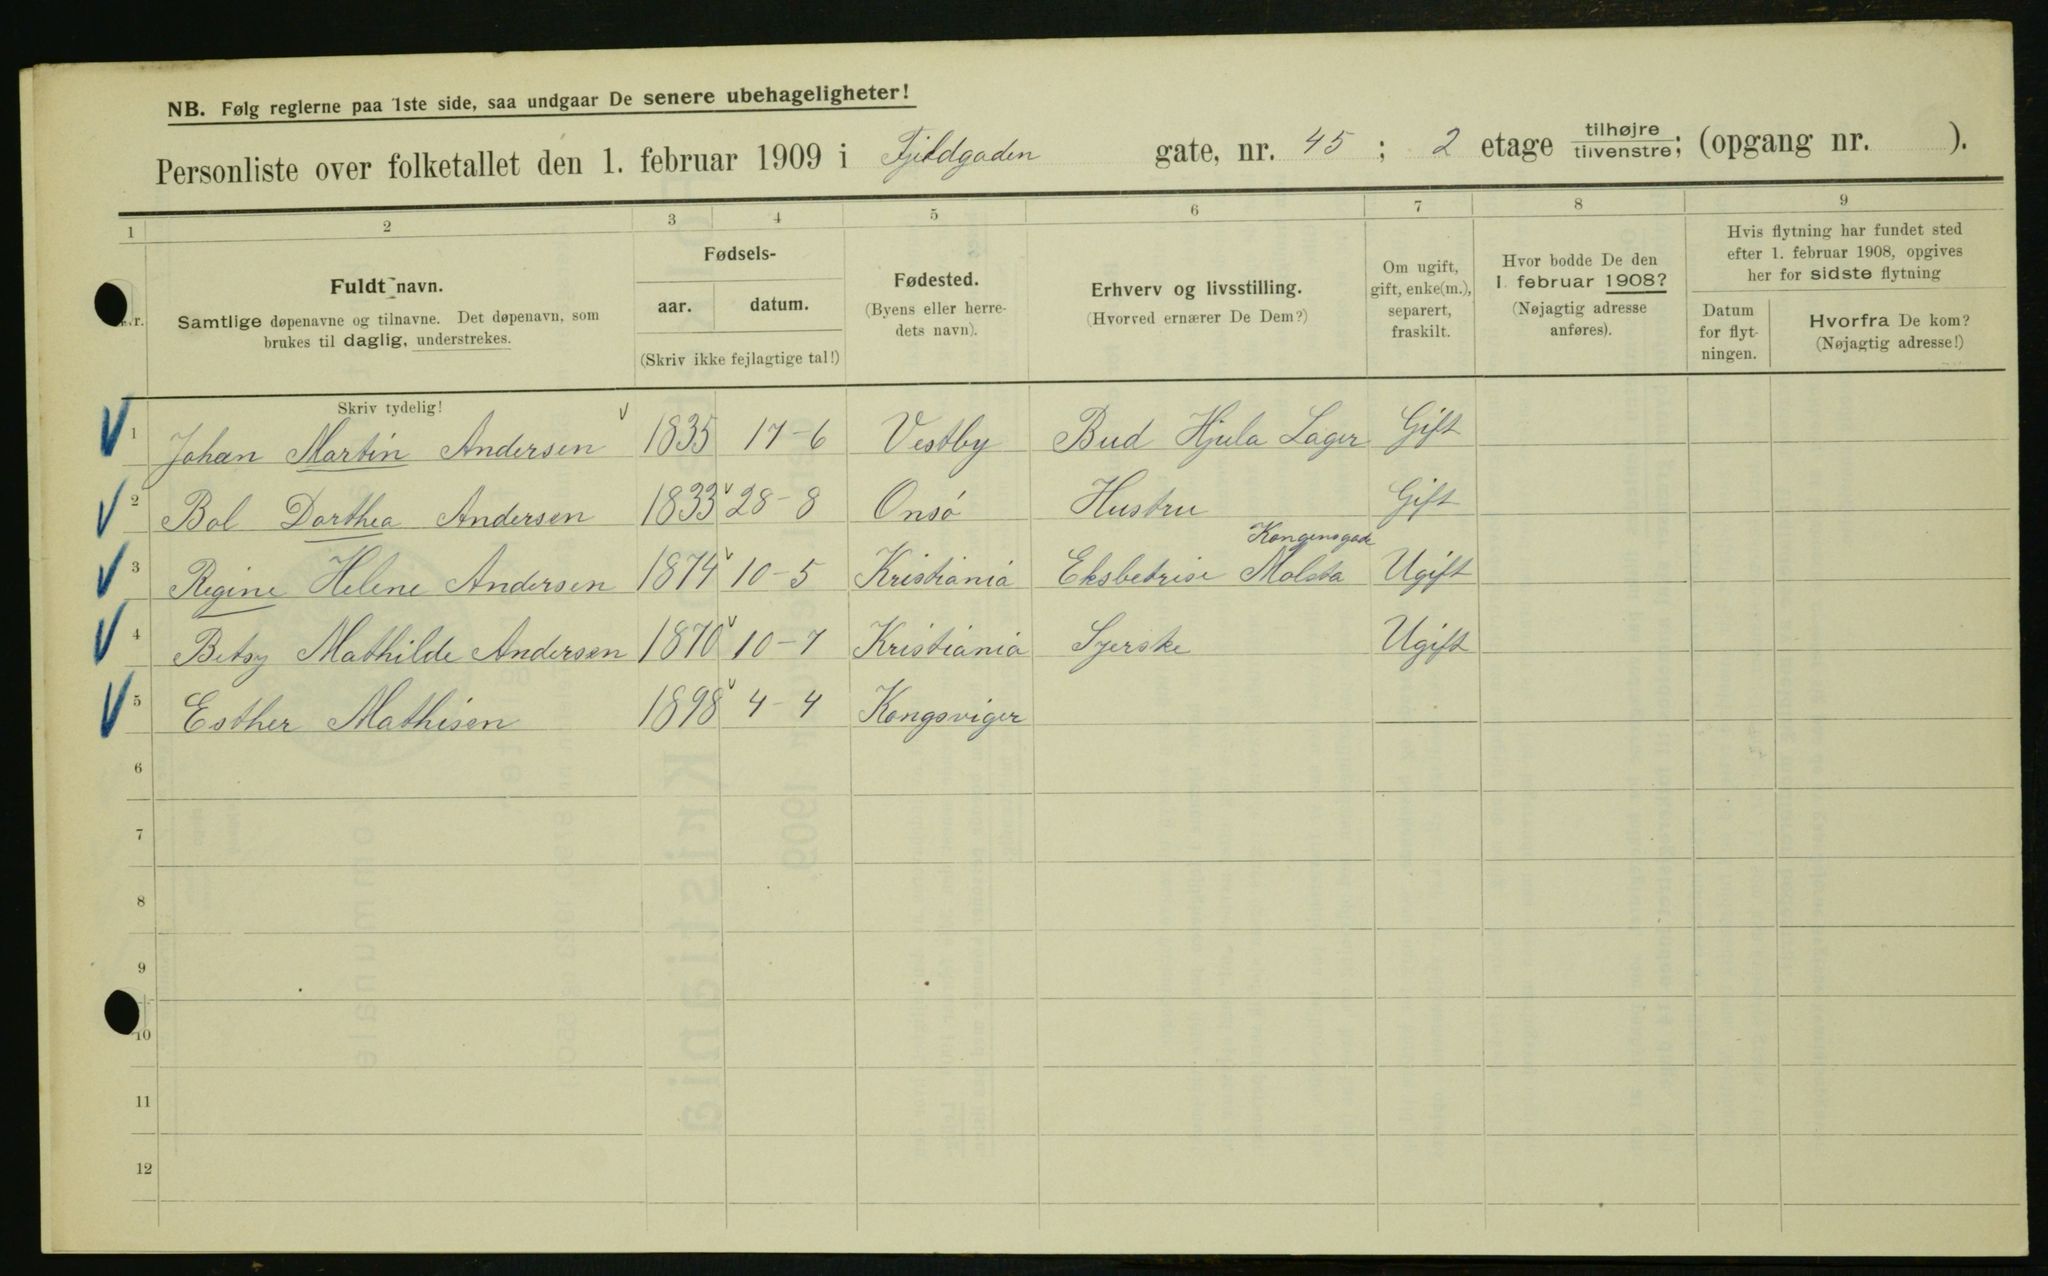 NB. Følg reglerne paa 1ste side, saa undgaar De senere ubehageligheter!
Personliste over folketallet den 1. februar 1909 i Fjeldgaden gate, nr. 45 ; 2 etage tilhøjre tilvenstre; (opgang nr. ).
1 2 3 4 5 6 7 8 9
Nr.
Fuldt navn.
Samtlige døpenavne og tilnavne. Det døpenavn, som
brukes til daglig, understrekes.
Fødsels-
aar. datum.
(Skriv ikke fejlagtige tal!)
Fødested.
(Byens eller herre-
dets navn).
Erhverv og livsstilling.
(Hvorved ernærer De Dem?)
Om ugift,
gift, enke(m.),
separert,
fraskilt.
Hvor bodde De den
1. februar 1908?
(Nøjagtig adresse
anføres).
Hvis flytning har fundet sted
efter 1. februar 1908, opgives
her for sidste flytning
Datum
for flyt-
ningen.
Hvorfra De kom?
(Nøjagtig adresse!)
Skriv tydelig!
1 Johan Martin Andersen 1835 17-6 Vestby Bud Hjula Lager Gift
2 Bol Dorthea Andersen 1833 28-8 Onsø Hustru Gift
Kongensgade
3 Regine Helene Andersen 1874 10-5 Kristiania Eksbetrise Ugift
4 Betsy Mathilde Andersen 1870 10-7 Kristiania Syerske Ugift
5 Esther Mathisen 1898 4-4 Kongsviger
6
7
8
9
10
11
12